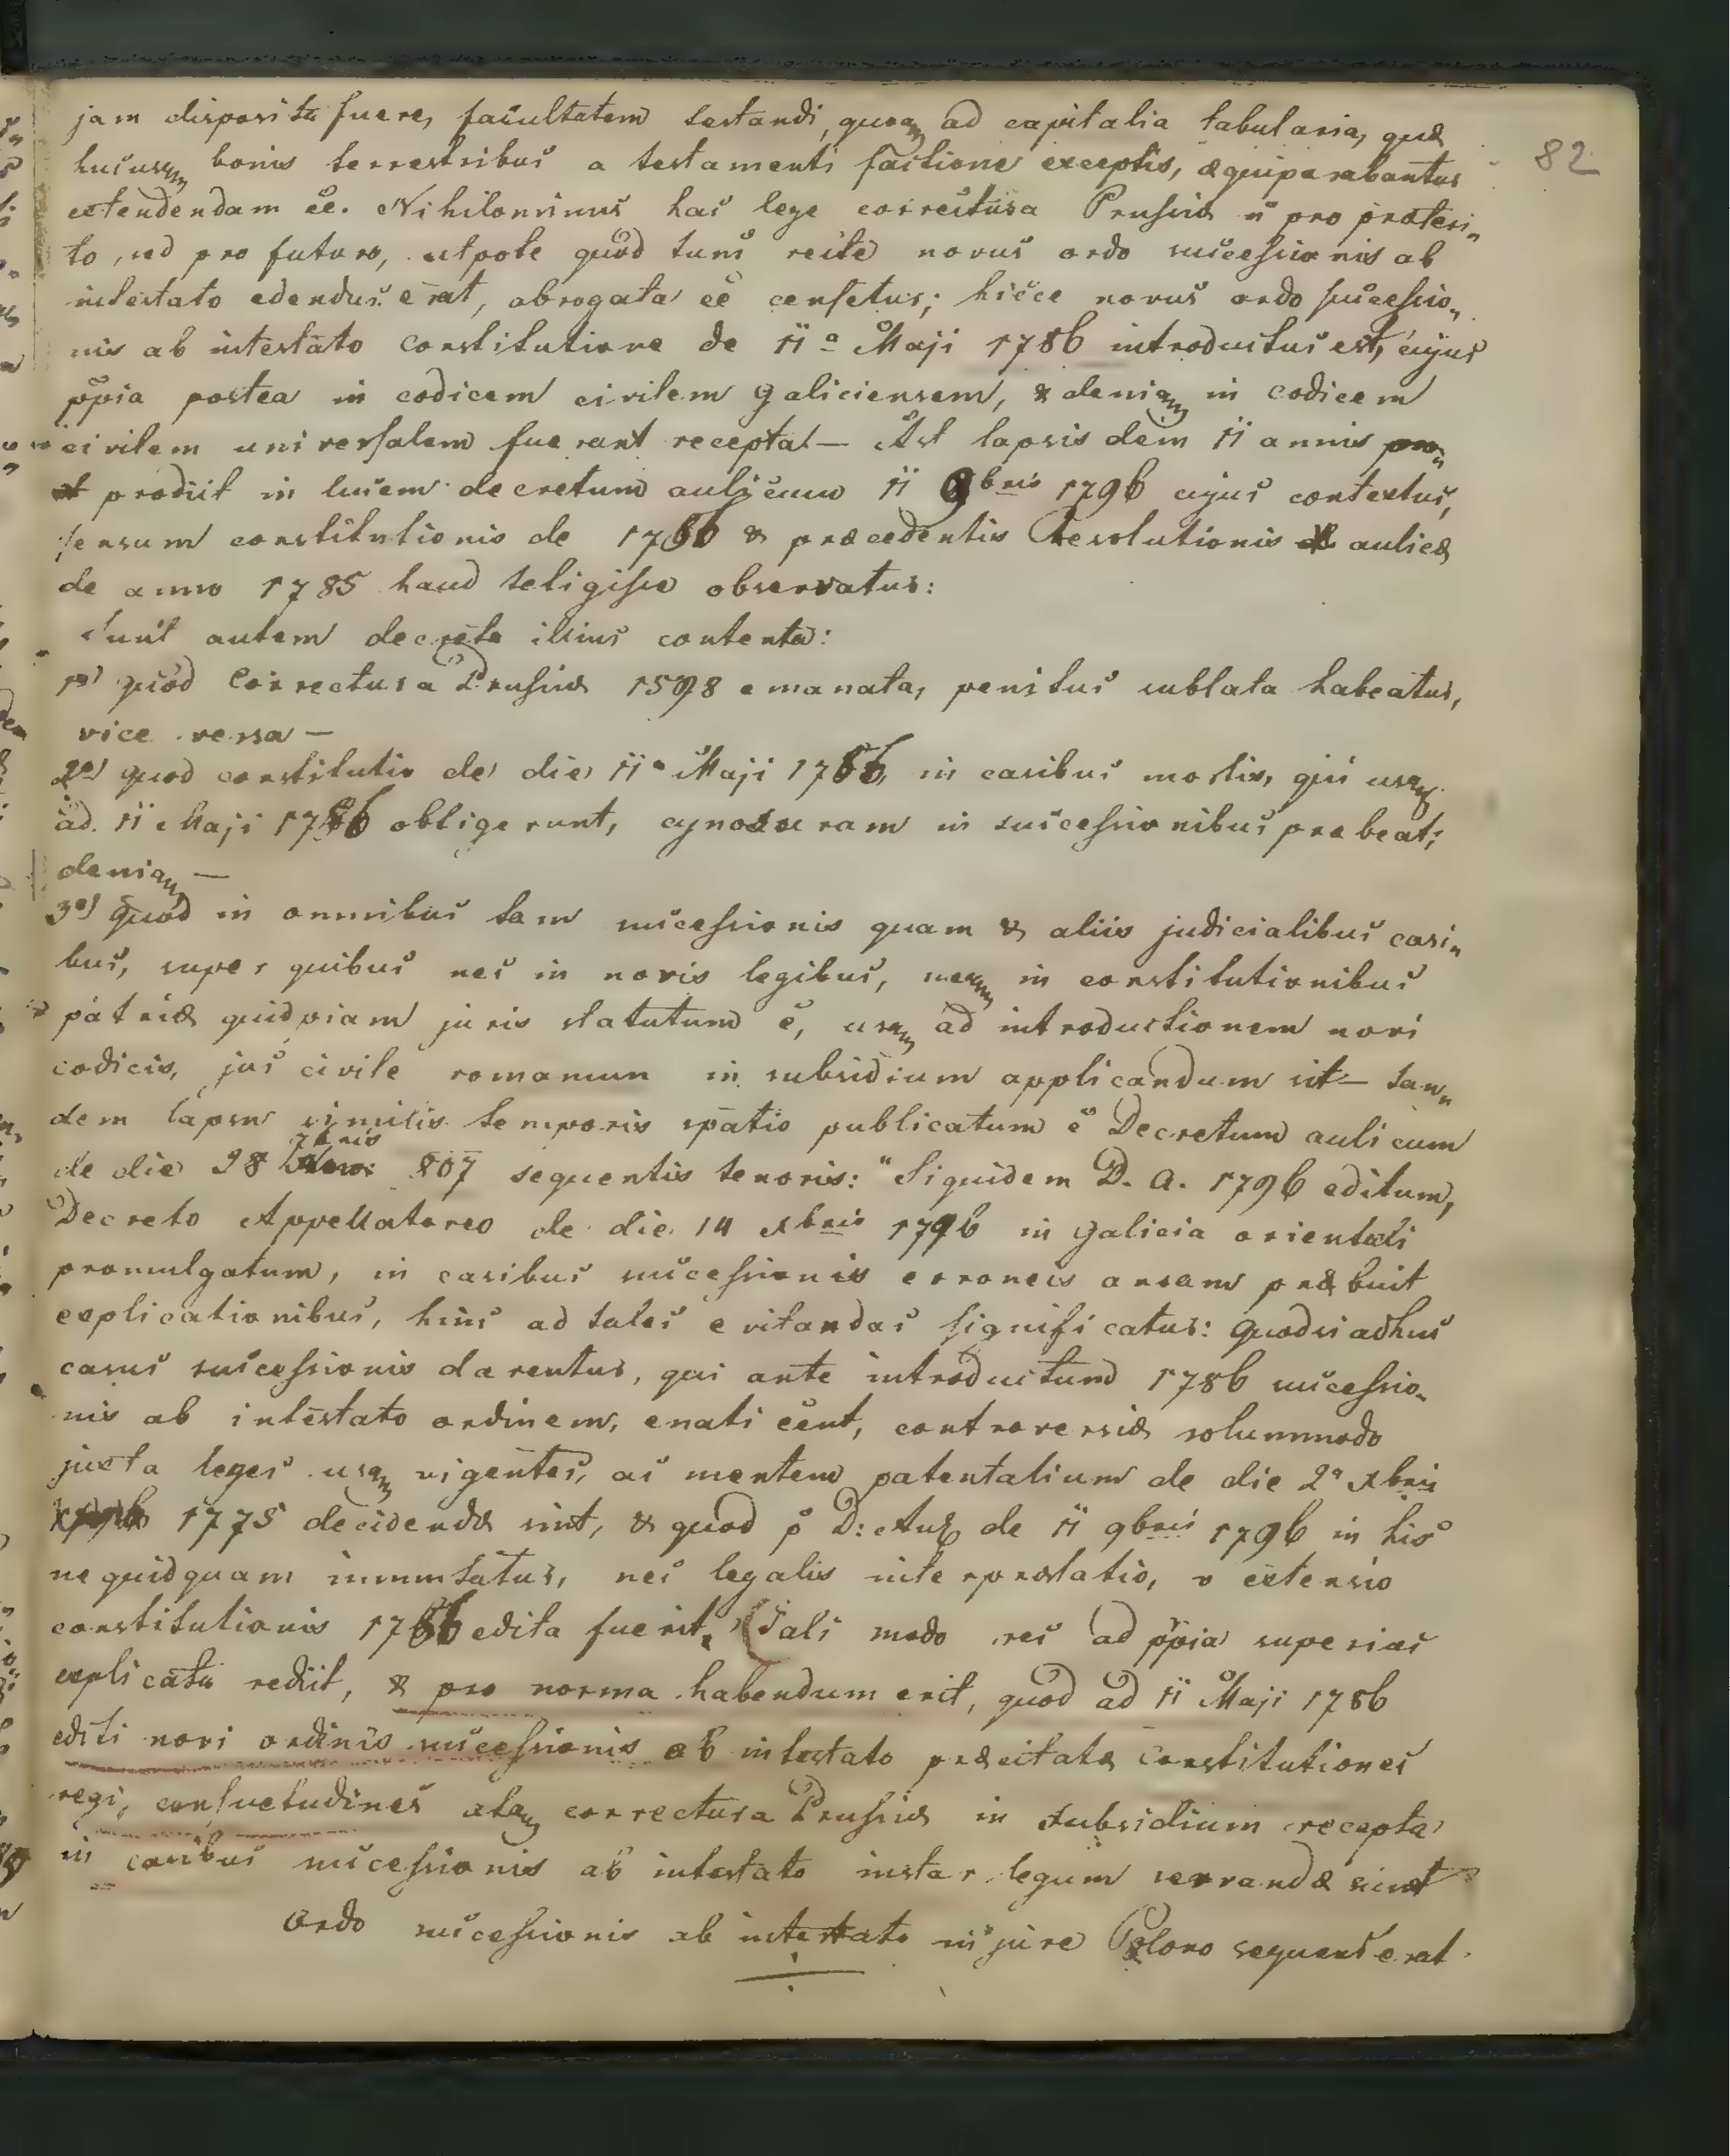 82
jam disposita fuere, facultatem testandi, quoq ad capitalia tabularia, quæ
hucusq bonis terrestribus a testamenti factione exceptis, æquiparabantur
extendendam eē. Nihilominus hac lege correctura Prussiæ ñ pro præteri„
to, sed pro futuro, utpote quod tunc recte novus ordo successionis ab
intestato edendus erat, abrogata eē censetur; hicce novus ordo successio„
nis ab intestato constitutione de 11a Maji 1786 introductus est, cujus
ppia postea in codicem civilem Galiciensem, & deniq in codicem
civilem universalem fuerant recepta. — Ast lapsis dem 11 annis
prodiit in lucem decretum aulicum 11 9bris 1796 cujus contextus,
sensum constitutionis de 1786 & præcedentis Resolutionis aulicæ
de anno 1785 haud teligisse observatur:
Sunt autem decreta illius contenta:
1o) quod Correctura Prussiæ 1598 emanata, penitus sublata habeatur,
vice versa —
2o) quod constitutio de die 11a Maji 1786, in casibus mortis, qui usq
ad 11 Maji 1786 obligerunt, cynosuram in successionibus præbeat;
deniq —
3o) quod in omnibus tam successionis quam & aliis judicialibus casi„
bus, super quibus nec in novis legibus, neq in constitutionibus
patriæ quidpiam juris statutum ē, usq ad introductionem novi
codicis, jus civile romanum in subsidium applicandum sit — tan„
dem lapsu similis temporis spatio publicatum ē Decretum aulicum
de die 28 7bris 807 sequentis tenoris: "Siquidem D. A. 1796 editum,
Decreto Appellatoreo de die 14 Xbris 1796 in Galicia orientali
promulgatum, in casibus successionis erroneis ansam præbuit
explicationibus, hinc ad tales evitandas significatur: Quodsi adhuc
casus successionis darentur, qui ante introductum 1786 successio„
nis ab intestato ordinem, enati eēnt, controversiæ solummodo
juxta leges usq vigentes, ac mentem patentalium de die 2a Xbris
1775 decidendæ sint, & quod p D: Aul de 11 9bris 1796 in his
nequidquam immutatur, nec legalis interpretatio, v extensio
constitutionis 1786 edita fuerit." (Tali modo res ad ppia superius
explicata rediit, & pro norma habendum erit, quod ad 11 Maji 1786
editi novi ordinis successionis ab intestato præcitatæ Constitutiones
regi, consuetudines atq correctura Prussiæ in subsidium recepta
in casibus successionis ab intestato instar legum servandæ sint
Ordo successionis ab intestato in jure Polono sequens erat.